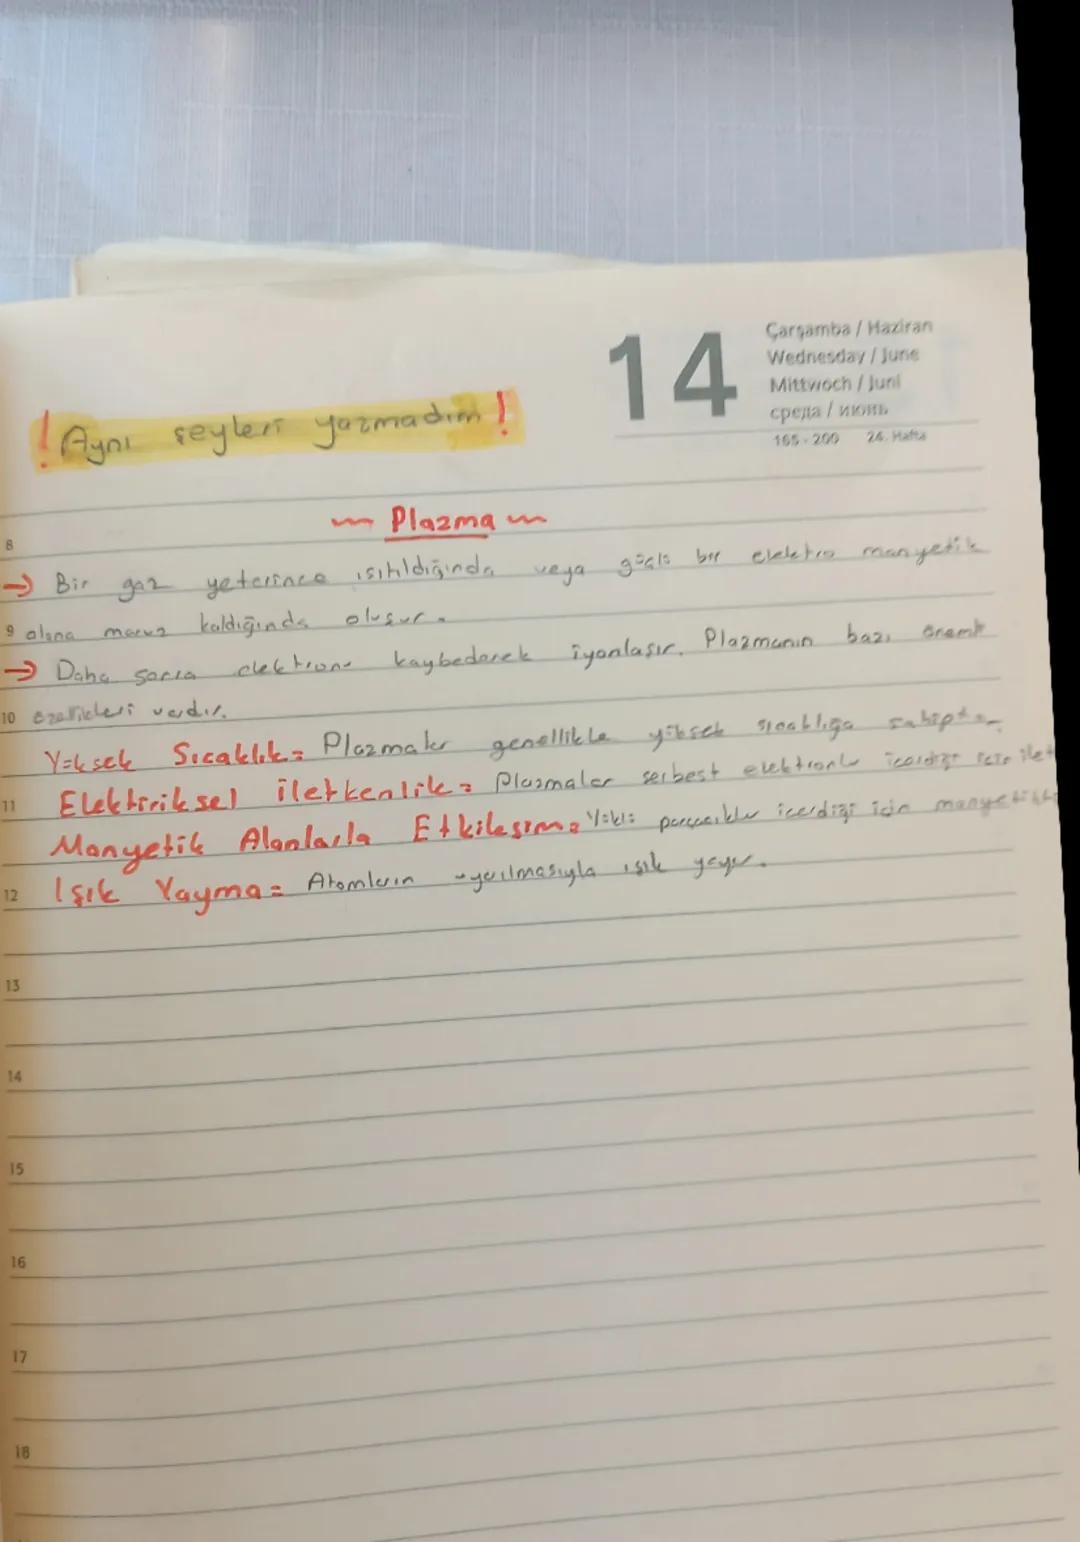 14
Çarşamba / Haziran
Wednesday / June
Mittwoch / Juni
среда / июнь
165 - 200 24. Hafta
! Aynı şeyleri yazmadım !
~ Plazma ~
8
→ Bir gaz yeterince ısıtıldığında veya güçlü bir elektro manyetik
9 alana maruz kaldığında oluşur.
→ Daha sonra elektron kaybederek iyonlaşır. Plazmanın bazı önemli
10 özellikleri vardır.
Yüksek Sıcaklık= Plazmalar genellikle yüksek sıcaklığa sahiptir
11 Elektiriksel iletkenlik= Plazmalar serbest elektronlar içerdiği için ilet
Manyetik Alanlarla Etkileşim= Yüklü parçacıklar içerdiği için
12 Işık Yayma= Atomların uyarılmasıyla ışık yayar.
13
14
15
16
17
18